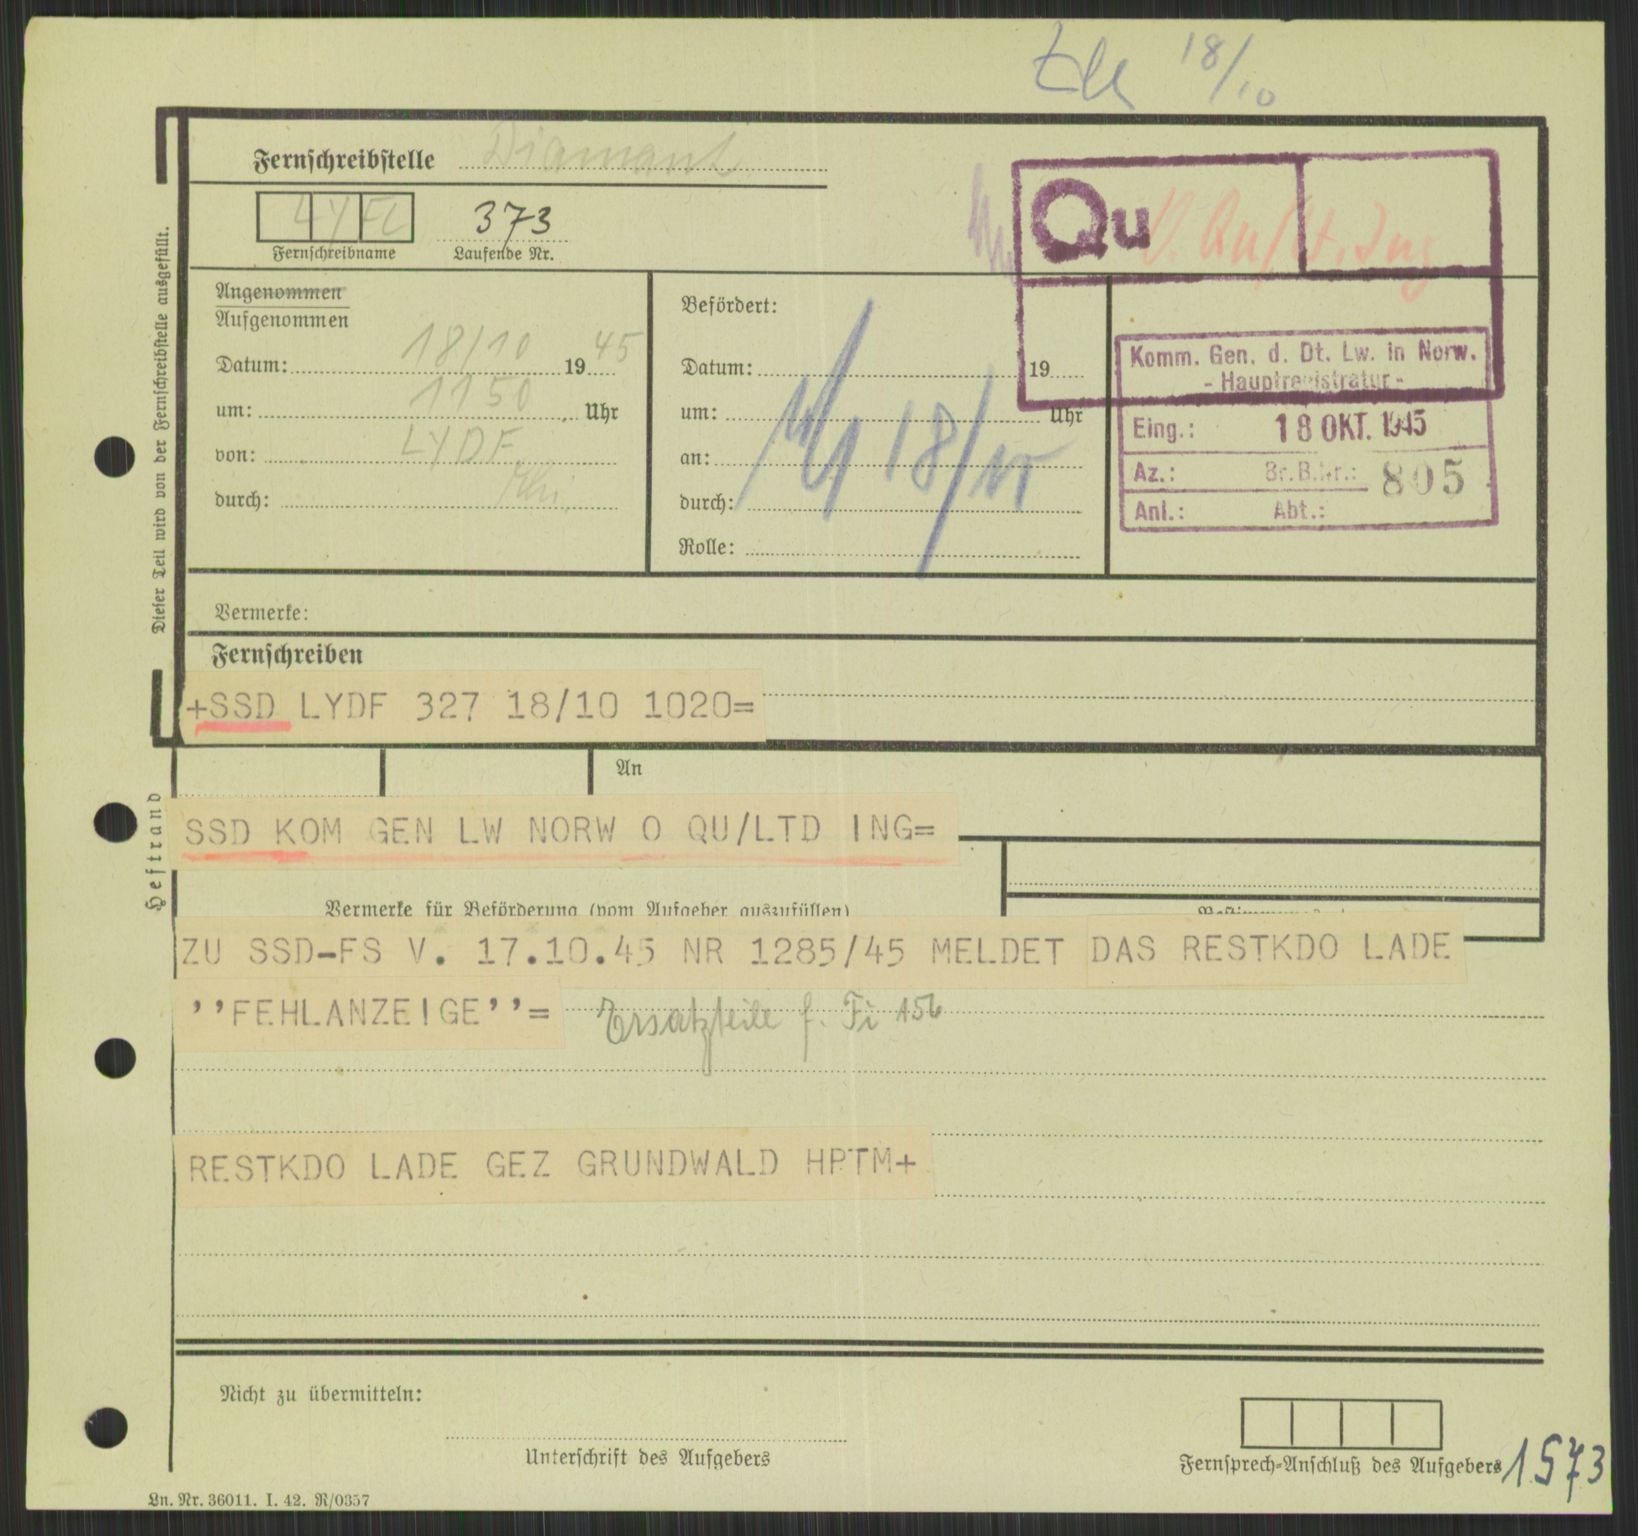 18/10
Fernschreibstelle Diamant
LYFL 373
Fernschreibname Laufende Nr.
Qu
Dieser Teil wird von der Fernschreibstelle ausgefüllt.
Angenommen
Aufgenommen
Datum: 18/10 1945
um: 1150 Uhr
von: LYDF
durch:
Befördert:
Datum: 19
um: Uhr
an:
durch:
Rolle:
18/10
Komm. Gen. d. Dt. Lw. in Norw.
- Hauptregistratur -
Eing.: 18 OKT. 1945
Az.: Br.B.Nr.: 805
Anl.: Abt.:
Vermerke:
Fernschreiben
+SSD LYDF 327 18/10 1020=
An
SSD KOM GEN LW NORW O QU/LTD ING=
Heftrand
Vermerke für Beförderung (vom Aufgeber auszufüllen)
ZU SSD-FS V. 17.10.45 NR 1285/45 MELDET DAS RESTKDO LADE
''FEHLANZEIGE''= Ersatzteile f. Fi 156
RESTKDO LADE GEZ GRUNDWALD HPTM+
Nicht zu übermitteln:
Unterschrift des Aufgebers
Fernsprech-Anschluß des Aufgebers 1573
Ln. Nr. 36011. I. 42. R/0357